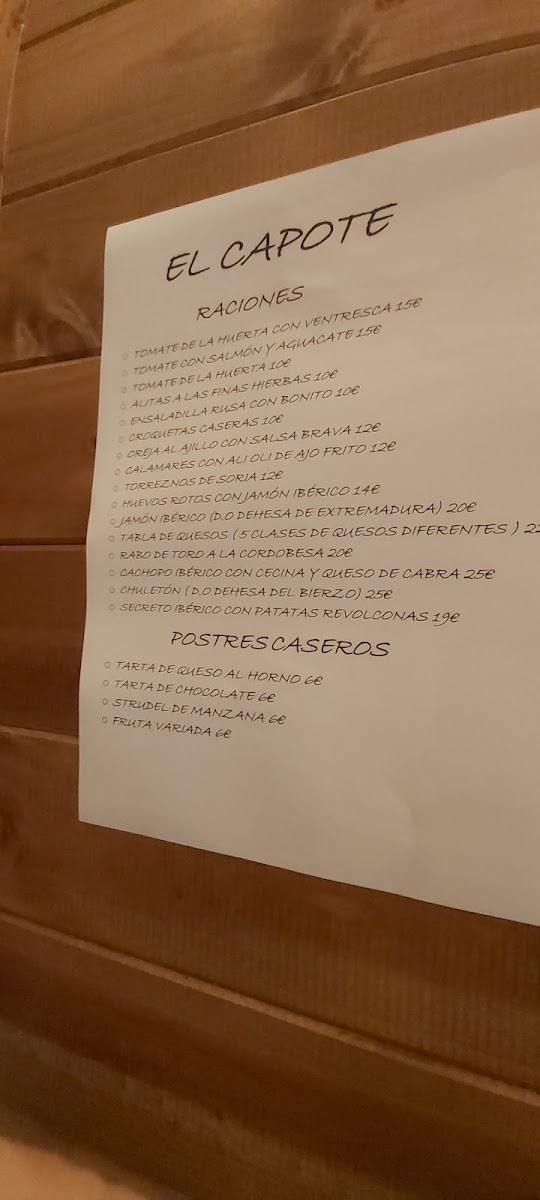 EL CAPOTE
RACIONES
TOMATE DE LA HUERTA CON VENTRESCA 15€
TOMATE CON SALMÓN Y AGUACATE 15€
TOMATE DE LA HUERTA 10€
ALITAS A LAS FINAS HIERBAS 10€
ENSALADILLA RUSA CON BONITO 10€
CROQUETAS CASERAS 10€
OREJA AL AJILLO CON SALSA BRAVA 12€
CALAMARES CON ALI OLI DE AJO FRITO 12€
TORREZNOS DE SORIA 12€
HUEVOS ROTOS CON JAMÓN IBÉRICO 14€
JAMÓN IBÉRICO (D.O DEHESA DE EXTREMADURA) 20€
TABLA DE QUESOS ( 5 CLASES DE QUESOS DIFERENTES )
RABO DE TORO A LA CORDOBESA 20€
CACHOPO IBÉRICO CON CECINA Y QUESO DE CABRA 25€
CHULETÓN ( D.O DEHESA DEL BIERZO) 25€
SECRETO IBÉRICO CON PATATAS REVOLCONAS 19€
POSTRES CASEROS
TARTA DE QUESO AL HORNO 6€
TARTA DE CHOCOLATE 6€
STRUDEL DE MANZANA 6€
FRUTA VARIADA 6€